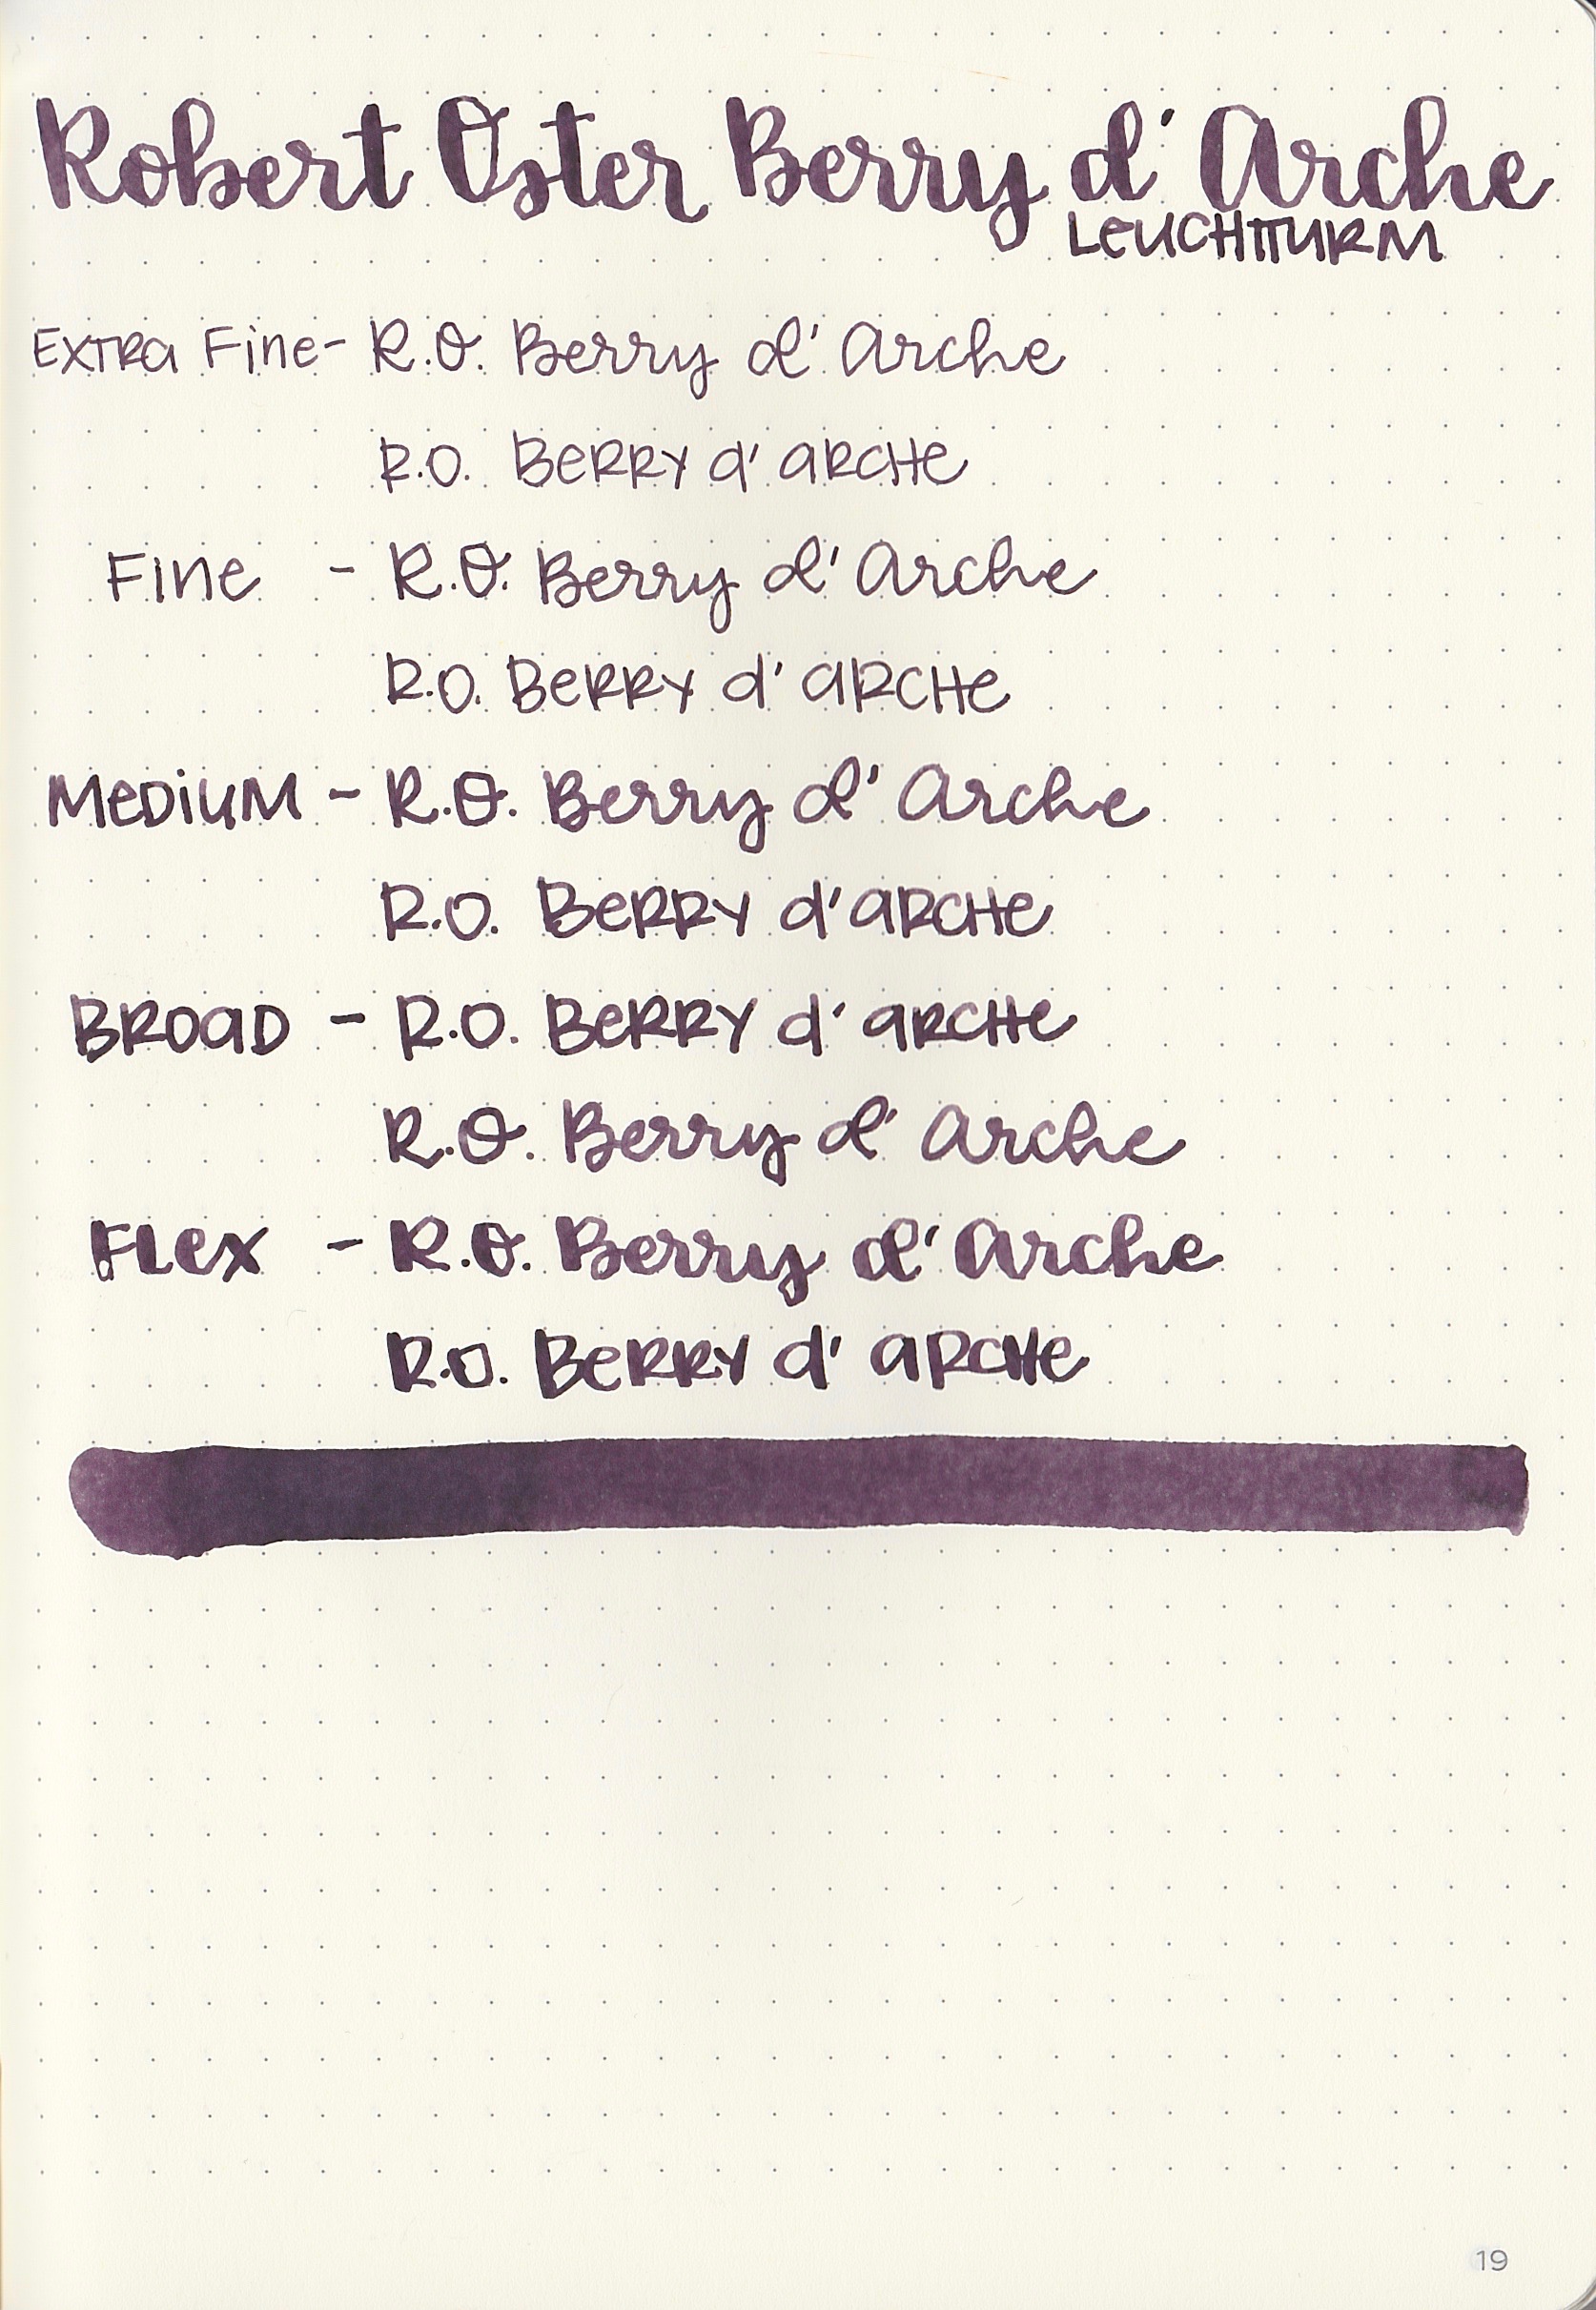 Robert Oster Berry d' Arche
LEUCHTTURM
EXTRa Fine - R.O. Berry d' Arche
R.O. BeRRY d' aRCHe
Fine - R.O. Berry d' Arche
R.O. BeRRY d' aRCHe
MeDiUM - R.O. Berry d' Arche
R.O. BeRRY d' aRCHe
BROaD - R.O. BeRRY d' aRCHe
R.O. Berry d' Arche
FLex - R.O. Berry d' Arche
R.O. BeRRY d' aRCHe
19